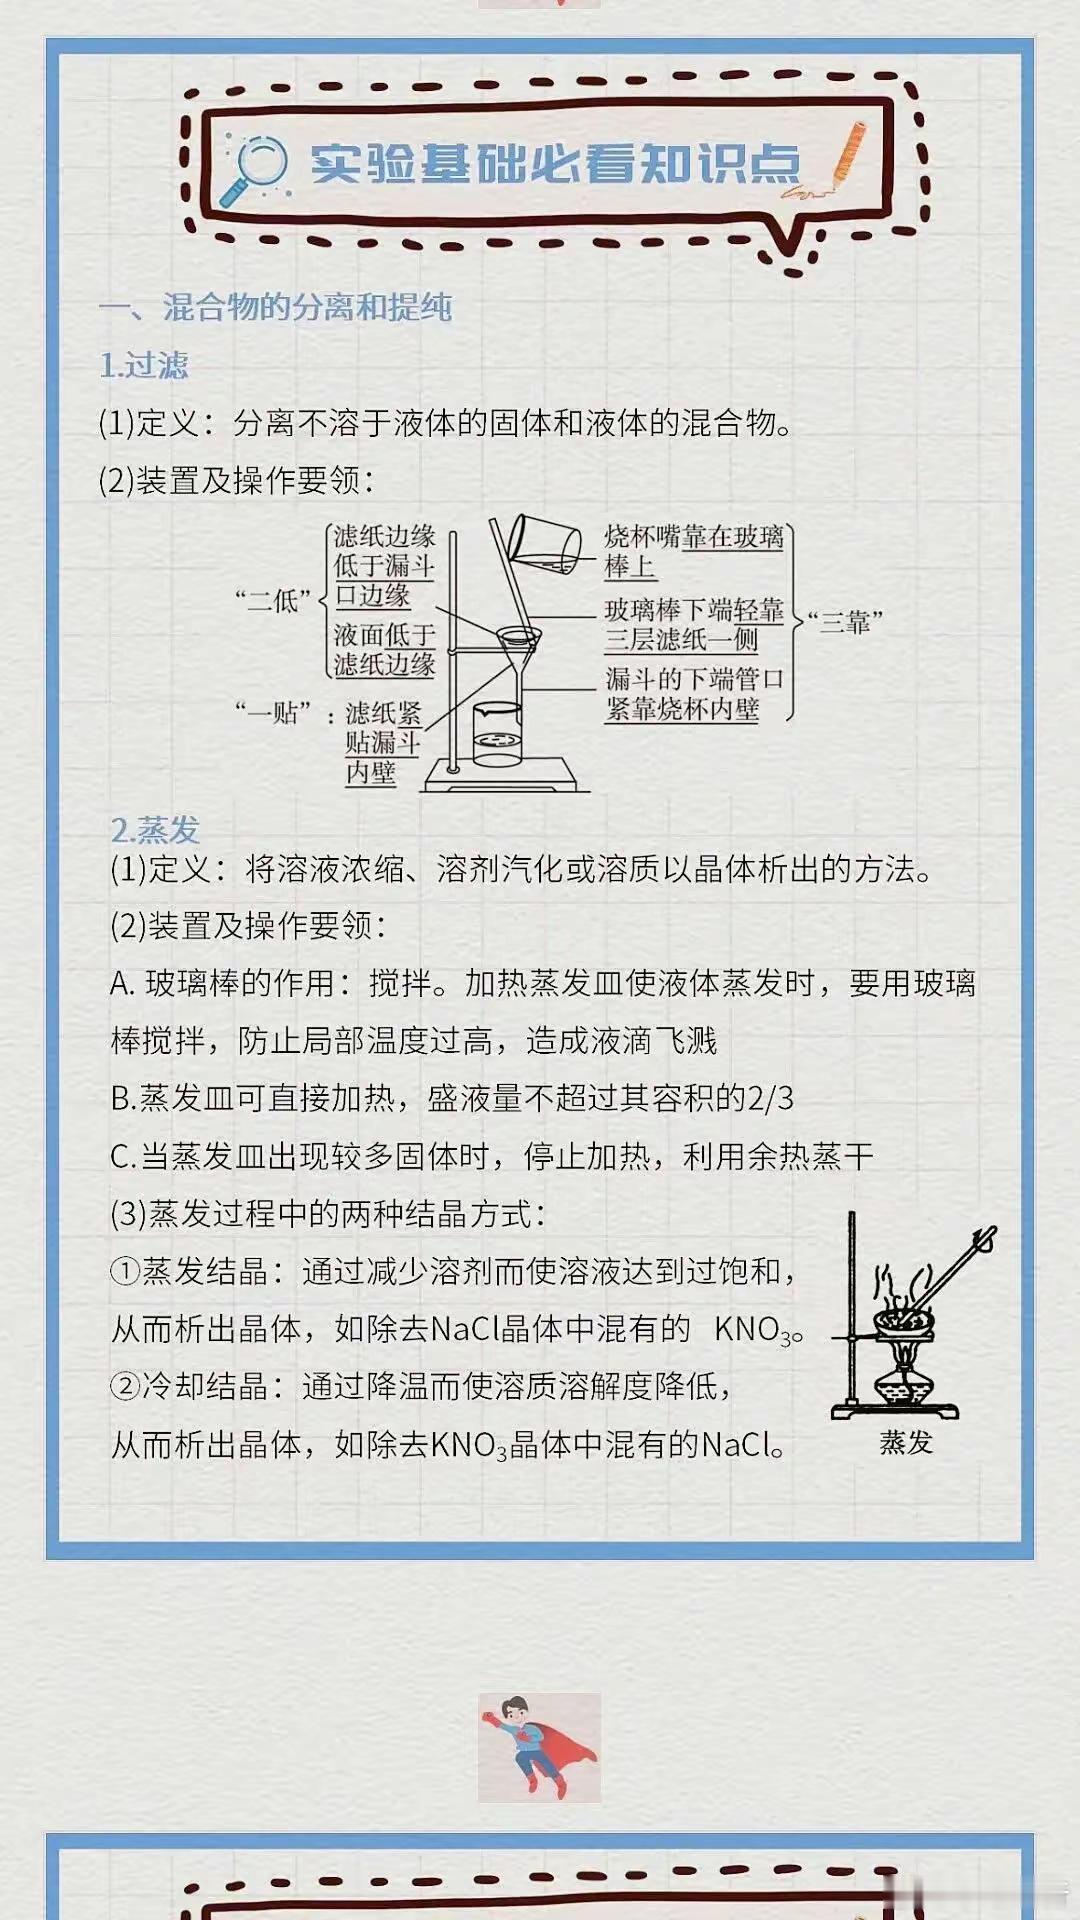 实验基础必看知识点
一、混合物的分离和提纯
1.过滤
(1)定义：分离不溶于液体的固体和液体的混合物。
(2)装置及操作要领：
“二低”
滤纸边缘
低于漏斗
口边缘
液面低于
滤纸边缘
“一贴”：滤纸紧
贴漏斗
内壁
烧杯嘴靠在玻璃
棒上
玻璃棒下端轻靠
三层滤纸一侧
漏斗的下端管口
紧靠烧杯内壁
“三靠”
2.蒸发
(1)定义：将溶液浓缩、溶剂汽化或溶质以晶体析出的方法。
(2)装置及操作要领：
A. 玻璃棒的作用：搅拌。加热蒸发皿使液体蒸发时，要用玻璃
棒搅拌，防止局部温度过高，造成液滴飞溅
B.蒸发皿可直接加热，盛液量不超过其容积的2/3
C.当蒸发皿出现较多固体时，停止加热，利用余热蒸干
(3)蒸发过程中的两种结晶方式：
①蒸发结晶：通过减少溶剂而使溶液达到过饱和，
从而析出晶体，如除去NaCl晶体中混有的 KNO₃。
②冷却结晶：通过降温而使溶质溶解度降低，
从而析出晶体，如除去KNO₃晶体中混有的NaCl。
蒸发